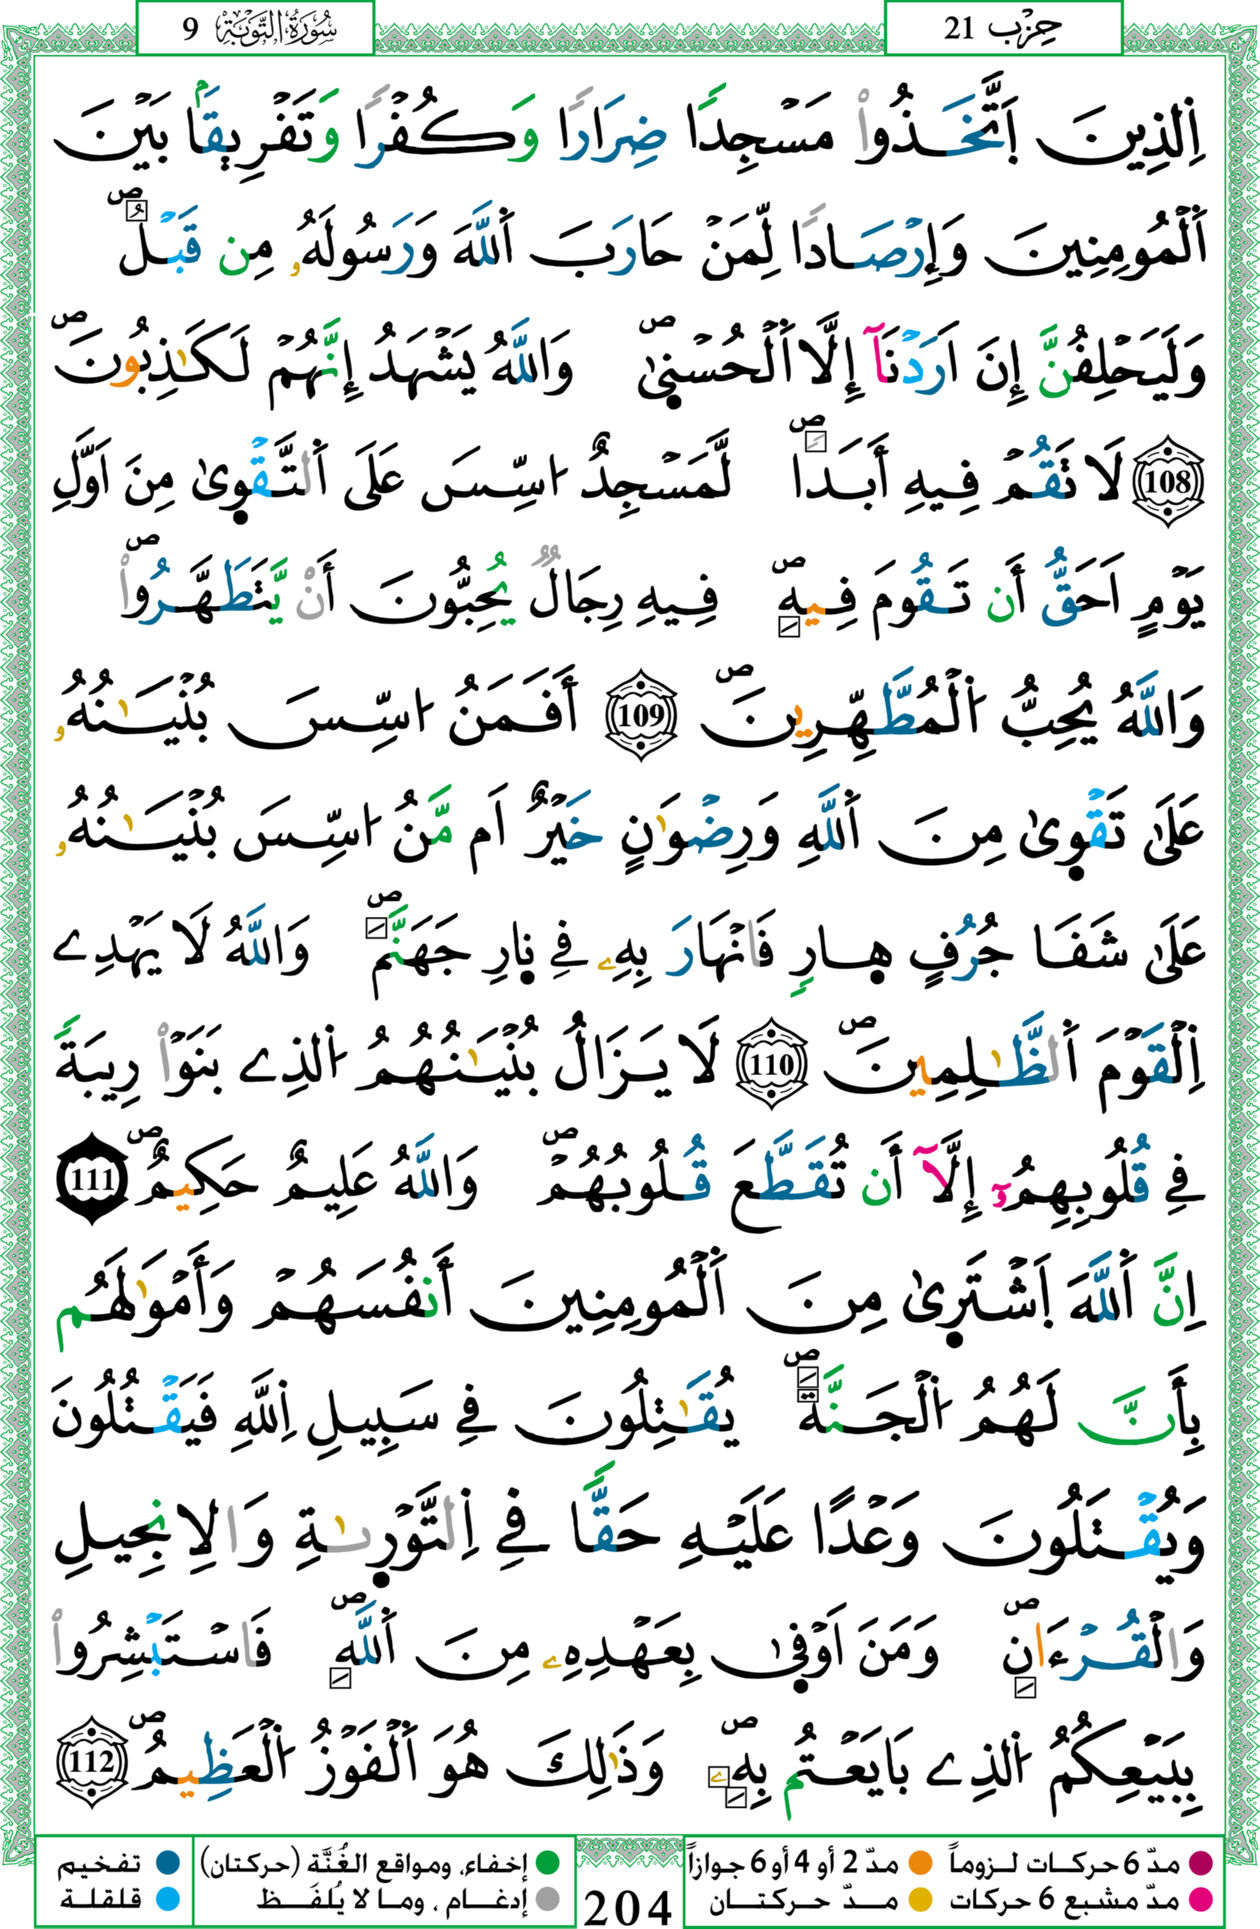 حِزْب 21
سُورَةُ التَّوْبَة 9
اِ۬لذِينَ اَ۪تَّخَذُواْ مَسْجِداٗ ضِرَاراٗ وَكُفْراٗ وَتَفْرِيقاَۢ بَيْنَ
اَ۬لْمُومِنِينَ وَإِرْصَاداٗ لِّمَنْ حَارَبَ اَ۬للَّهَ وَرَسُولَهُۥ مِن قَبْلُۖ
وَلَيَحْلِفُنَّ إِنَ اَرَدْنَآ إِلَّا اَ۬لْحُسْن۪يٰۖ وَاللَّهُ يَشْهَدُ إِنَّهُمْ لَكَٰذِبُونَۖ
108 لَا تَقُمْ فِيهِ أَبَداٗۖ لَّمَسْجِدٌ ا۟سِّسَ عَلَى اَ۬لتَّقْو۪يٰ مِنَ اَوَّلِ
يَوْمٍ اَحَقُّ أَن تَقُومَ فِيهِۖ فِيهِ رِجَالٞ يُحِبُّونَ أَنْ يَّتَطَهَّرُواْۖ
وَاللَّهُ يُحِبُّ اُ۬لْمُطَّهِّرِينَۖ 109 أَفَمَنُ ا۟سِّسَ بُنْيَٰنُهُۥ
عَلَىٰ تَقْو۪يٰ مِنَ اَ۬للَّهِ وَرِضْوَٰنٍ خَيْرٌ اَم مَّنُ ا۟سِّسَ بُنْيَٰنُهُۥ
عَلَىٰ شَفَا جُرُفٍ ه۪ارٖ فَانْهَارَ بِهِۦ فِے ن۪ارِ جَهَنَّمَۖ وَاللَّهُ لَا يَهْدِے
اِ۬لْقَوْمَ اَ۬لظَّٰلِمِينَۖ 110 لَا يَزَالُ بُنْيَٰنُهُمُ اُ۬لذِے بَنَوْاْ رِيبَةٗ
فِے قُلُوبِهِمُۥٓ إِلَّآ أَن تُقَطَّعَ قُلُوبُهُمْۖ وَاللَّهُ عَلِيمٌ حَكِيمٌۖ 111
اِنَّ اَ۬للَّهَ اَ۪شْتَر۪يٰ مِنَ اَ۬لْمُومِنِينَ أَنفُسَهُمْ وَأَمْوَٰلَهُم
بِأَنَّ لَهُمُ اُ۬لْجَنَّةَۖ يُقَٰتِلُونَ فِے سَبِيلِ اِ۬للَّهِ فَيَقْتُلُونَ
وَيُقْتَلُونَ وَعْداً عَلَيْهِ حَقّاٗ فِے اِ۬لتَّوْر۪ىٰةِ وَالِانجِيلِ
وَالْقُرْءَانِۖ وَمَنَ اَوْف۪يٰ بِعَهْدِهِۦ مِنَ اَ۬للَّهِۖ فَاسْتَبْشِرُواْ
بِبَيْعِكُمُ اُ۬لذِے بَايَعْتُم بِهِۦۖ وَذَٰلِكَ هُوَ اَ۬لْفَوْزُ اُ۬لْعَظِيمُۖ 112
مدّ 6 حركات لـزوماً مدّ 2 أو 4 أو 6 جوازاً
مدّ مشبع 6 حركات مـدّ حركتـان
204
إخفاء، ومواقع الغُنَّة (حركتان) تفخيم
إدغـام ، ومـا لا يُلفَـظ قلقلة